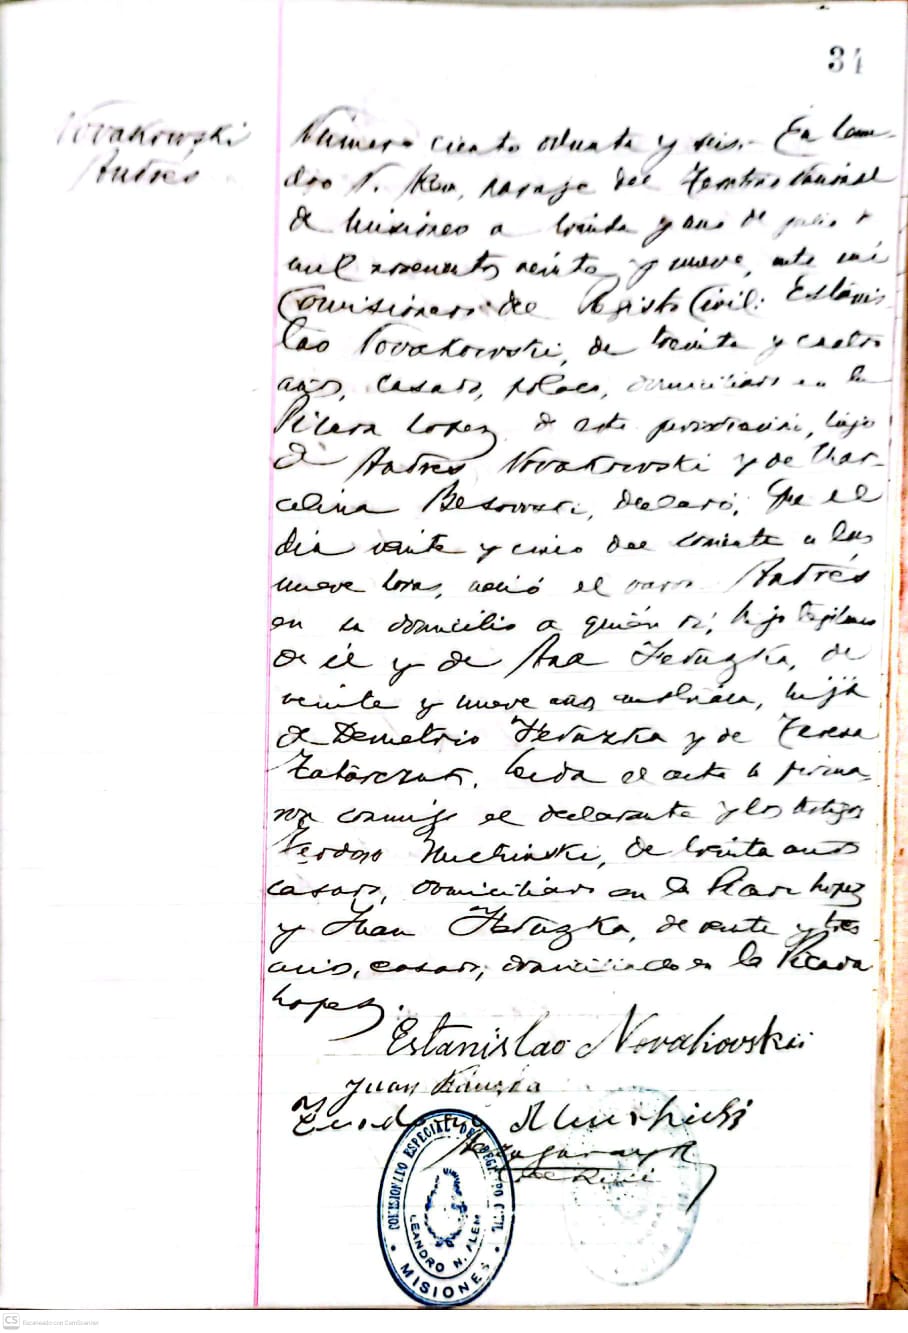 34
Novakowski
Andrés
Número ciento ochenta y seis.- En Lean-
dro N. Alem, paraje del Territorio Nacional
de Misiones a treinta y uno de julio de
mil novecientos veinte y nueve, ante mi
Comisionado del Registro Civil: Estanis-
lao Novakowski, de treinta y cuatro
años, casado, polaco, domiciliado en la
Picada Lopez de esta jurisdicción, hijo
de Andrés Novakowski y de Mar-
celina Besowski, declaró; Que el
día veinte y cinco del corriente a las
nueve horas, nació el varon Andrés
en su domicilio a quién vi, hijo legítimo
de él y de Ana, de
veinte y nueve años, austriaca, hija
de Demetrio y de Teresa
Zatarczuk. Leida el acta la firma-
ron conmigo el declarante y los testigos
Teodoso Muchinski, de treinta años
casado, domiciliado en la Picada Lopez
y Juan, de veinte y tres
años, casado, domiciliado en la Picada
Lopez.
Estanislao Novakovski
Juan
COMISIONADO ESPECIAL DE REGISTRO CIVIL
LEANDRO N. ALEM
MISIONES
CS Escaneado con CamScanner